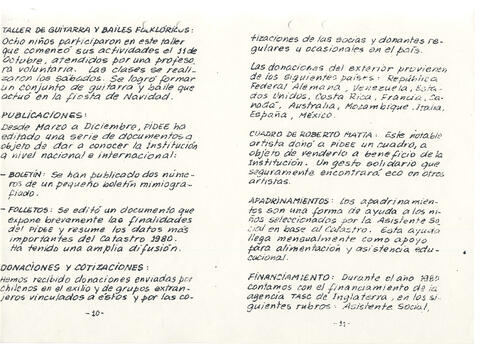 TALLER DE GUITARRA Y BAILES FOLKLÓRICOS:
Ocho niños participaron en este taller
que comenzó sus actividades el 11 de
Octubre, atendidos por una profeso_
ra voluntaria. Las clases se reali_
zaron los sábados. Se logró formar
un conjunto de guitarra y baile que
actuó en la fiesta de Navidad.
PUBLICACIONES:
Desde Marzo a Diciembre, PIDEE ha
editado una serie de documentos a
objeto de dar a conocer la Institución
a nivel nacional e internacional:
- BOLETÍN: Se han publicado dos núme_
ros de un pequeño boletín mimiogra_
fiado.
- FOLLETOS: Se editó un documento que
expone brevemente las finalidades
del PIDEE y resume los datos más
importantes del Catastro 1980.
Ha tenido una amplia difusión.
DONACIONES Y COTIZACIONES:
Hemos recibido donaciones enviadas por
chilenos en el exilio y de grupos extran_
jeros vinculados a éstos y por las co_
-10-
tizaciones de las socias y donantes re_
gulares u ocasionales en el país.
Las donaciones del exterior provienen
de los siguientes países: República
Federal Alemana, Venezuela, Esta_
dos Unidos, Costa Rica, Francia, Ca_
nadá, Australia, Mozambique, Italia,
España, México.
CUADRO DE ROBERTO MATTA: Este notable
artista donó a PIDEE un cuadro, a
objeto de venderlo a beneficio de la
Institución. Un gesto solidario que
seguramente encontrará eco en otros
artistas.
APADRINAMIENTOS: Los apadrinamien_
tos son una forma de ayuda a los ni_
ños seleccionados por la Asistente So_
cial en base al Catastro. Esta ayuda
llega mensualmente como apoyo
para alimentación y asistencia edu_
cacional.
FINANCIAMIENTO: Durante el año 1980
contamos con el financiamiento de la
agencia TASC de Inglaterra, en los si_
guientes rubros: Asistente Social,
-11-